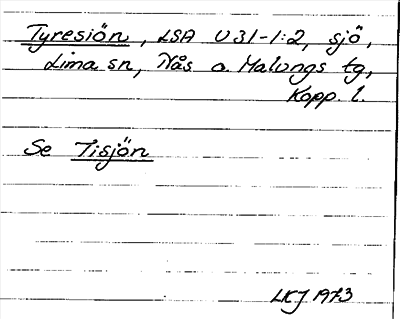 Tyresiön, LSA U31-1:2, sjö,
Lima sn, Nås o. Malungs tg,
Kopp. l.
Se Tisjön
LKJ 1973